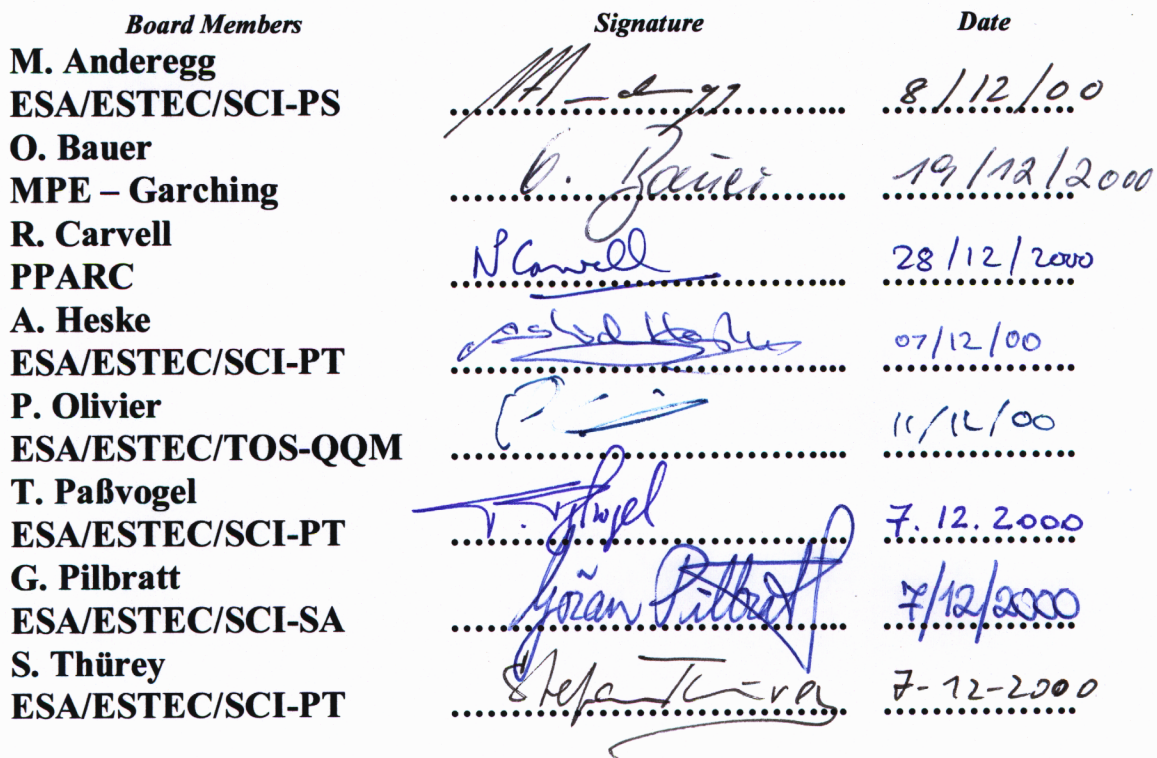 Board Members Signature Date
M. Anderegg
ESA/ESTEC/SCI-PS 8/12/00
O. Bauer
MPE – Garching O. Bauer 19/12/2000
R. Carvell
PPARC N Carvell 28/12/2000
A. Heske
ESA/ESTEC/SCI-PT Astrid Heske 07/12/00
P. Olivier
ESA/ESTEC/TOS-QQM 11/12/00
T. Paßvogel
ESA/ESTEC/SCI-PT 7.12.2000
G. Pilbratt
ESA/ESTEC/SCI-SA Göran Pilbratt 7/12/2000
S. Thürey
ESA/ESTEC/SCI-PT Stefan Thürey 7-12-2000